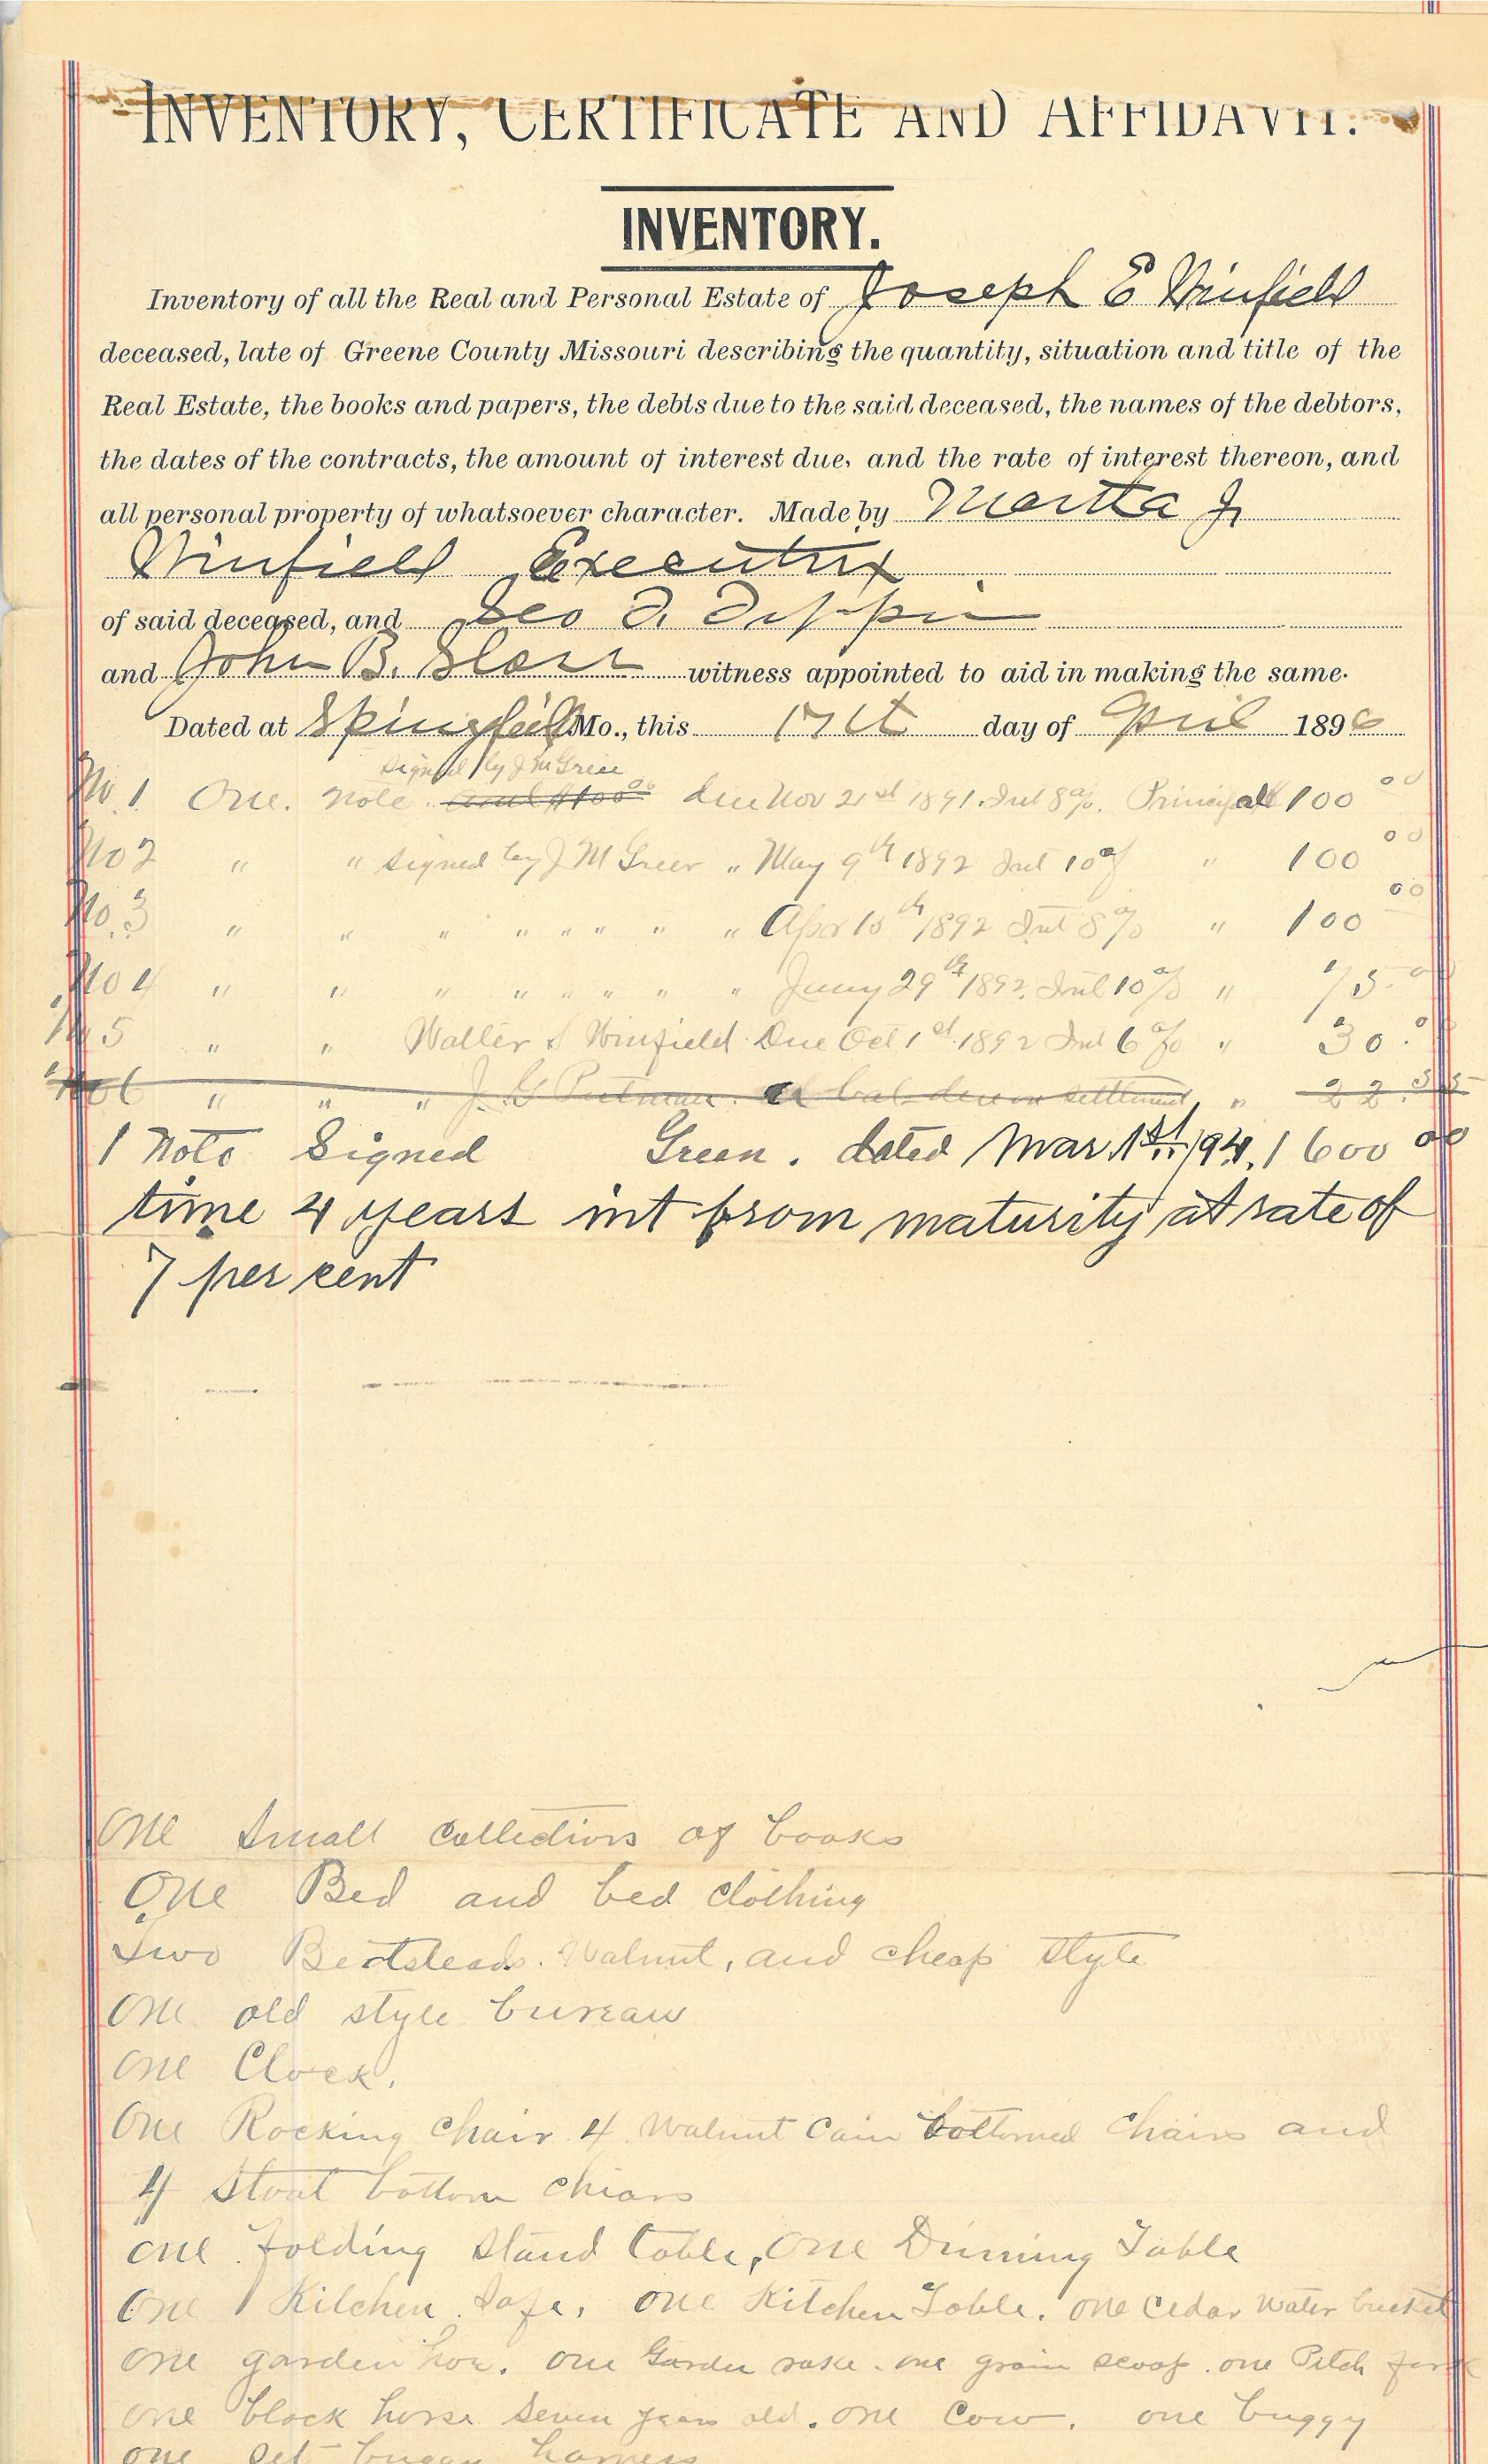 INVENTORY, CERTIFICATE AND AFFIDAVIT.
INVENTORY.
Inventory of all the Real and Personal Estate of Joseph E Winfield
deceased, late of Greene County Missouri describing the quantity, situation and title of the
Real Estate, the books and papers, the debts due to the said deceased, the names of the debtors,
the dates of the contracts, the amount of interest due, and the rate of interest thereon, and
all personal property of whatsoever character. Made by Martha J
Winfield Executrix
of said deceased, and Geo
and John B. witness appointed to aid in making the same.
Dated at Mo., this 17th day of April 1896
Signed by J M Greer
No 1 One. Note. and $100 00 due Nov 21st 1891. Int 8%. Principal 100 00
No 2 " " signed by J M Greer " May 9th 1892 Int 10% " 100 00
No. 3 " " " " " " " " Apr 15th 1892 Int 8% " 100 00
No 4 " " " " " " " " 29th 1892. Int 10% " 75. 00
No 5 " " Walter S Winfield. Due Oct 1st 1892 Int 6% " 30. 00
No 6 " " " J. G Putman. bal. due on settlement " 22.
1 Note Signed Green. dated Mar 1st 1600 00
time 4 years int from maturity at rate of
7 per cent
One Small Collections of books
One Bed and bed clothing
Two Bedsteads. Walnut, and cheap style
One old style bureau
One Clock.
One Rocking chair 4 walnut Cain bottomed chairs and
4 bottom chiars
one folding stand table, One Dinning Table
One Kitchen Safe. one Kitchen Table. one cedar water bucket
one garden hoe. one Garden rake. one grain scoop. one Pitch fork
one black horse seven years old. one Cow. one buggy
one set buggy harness